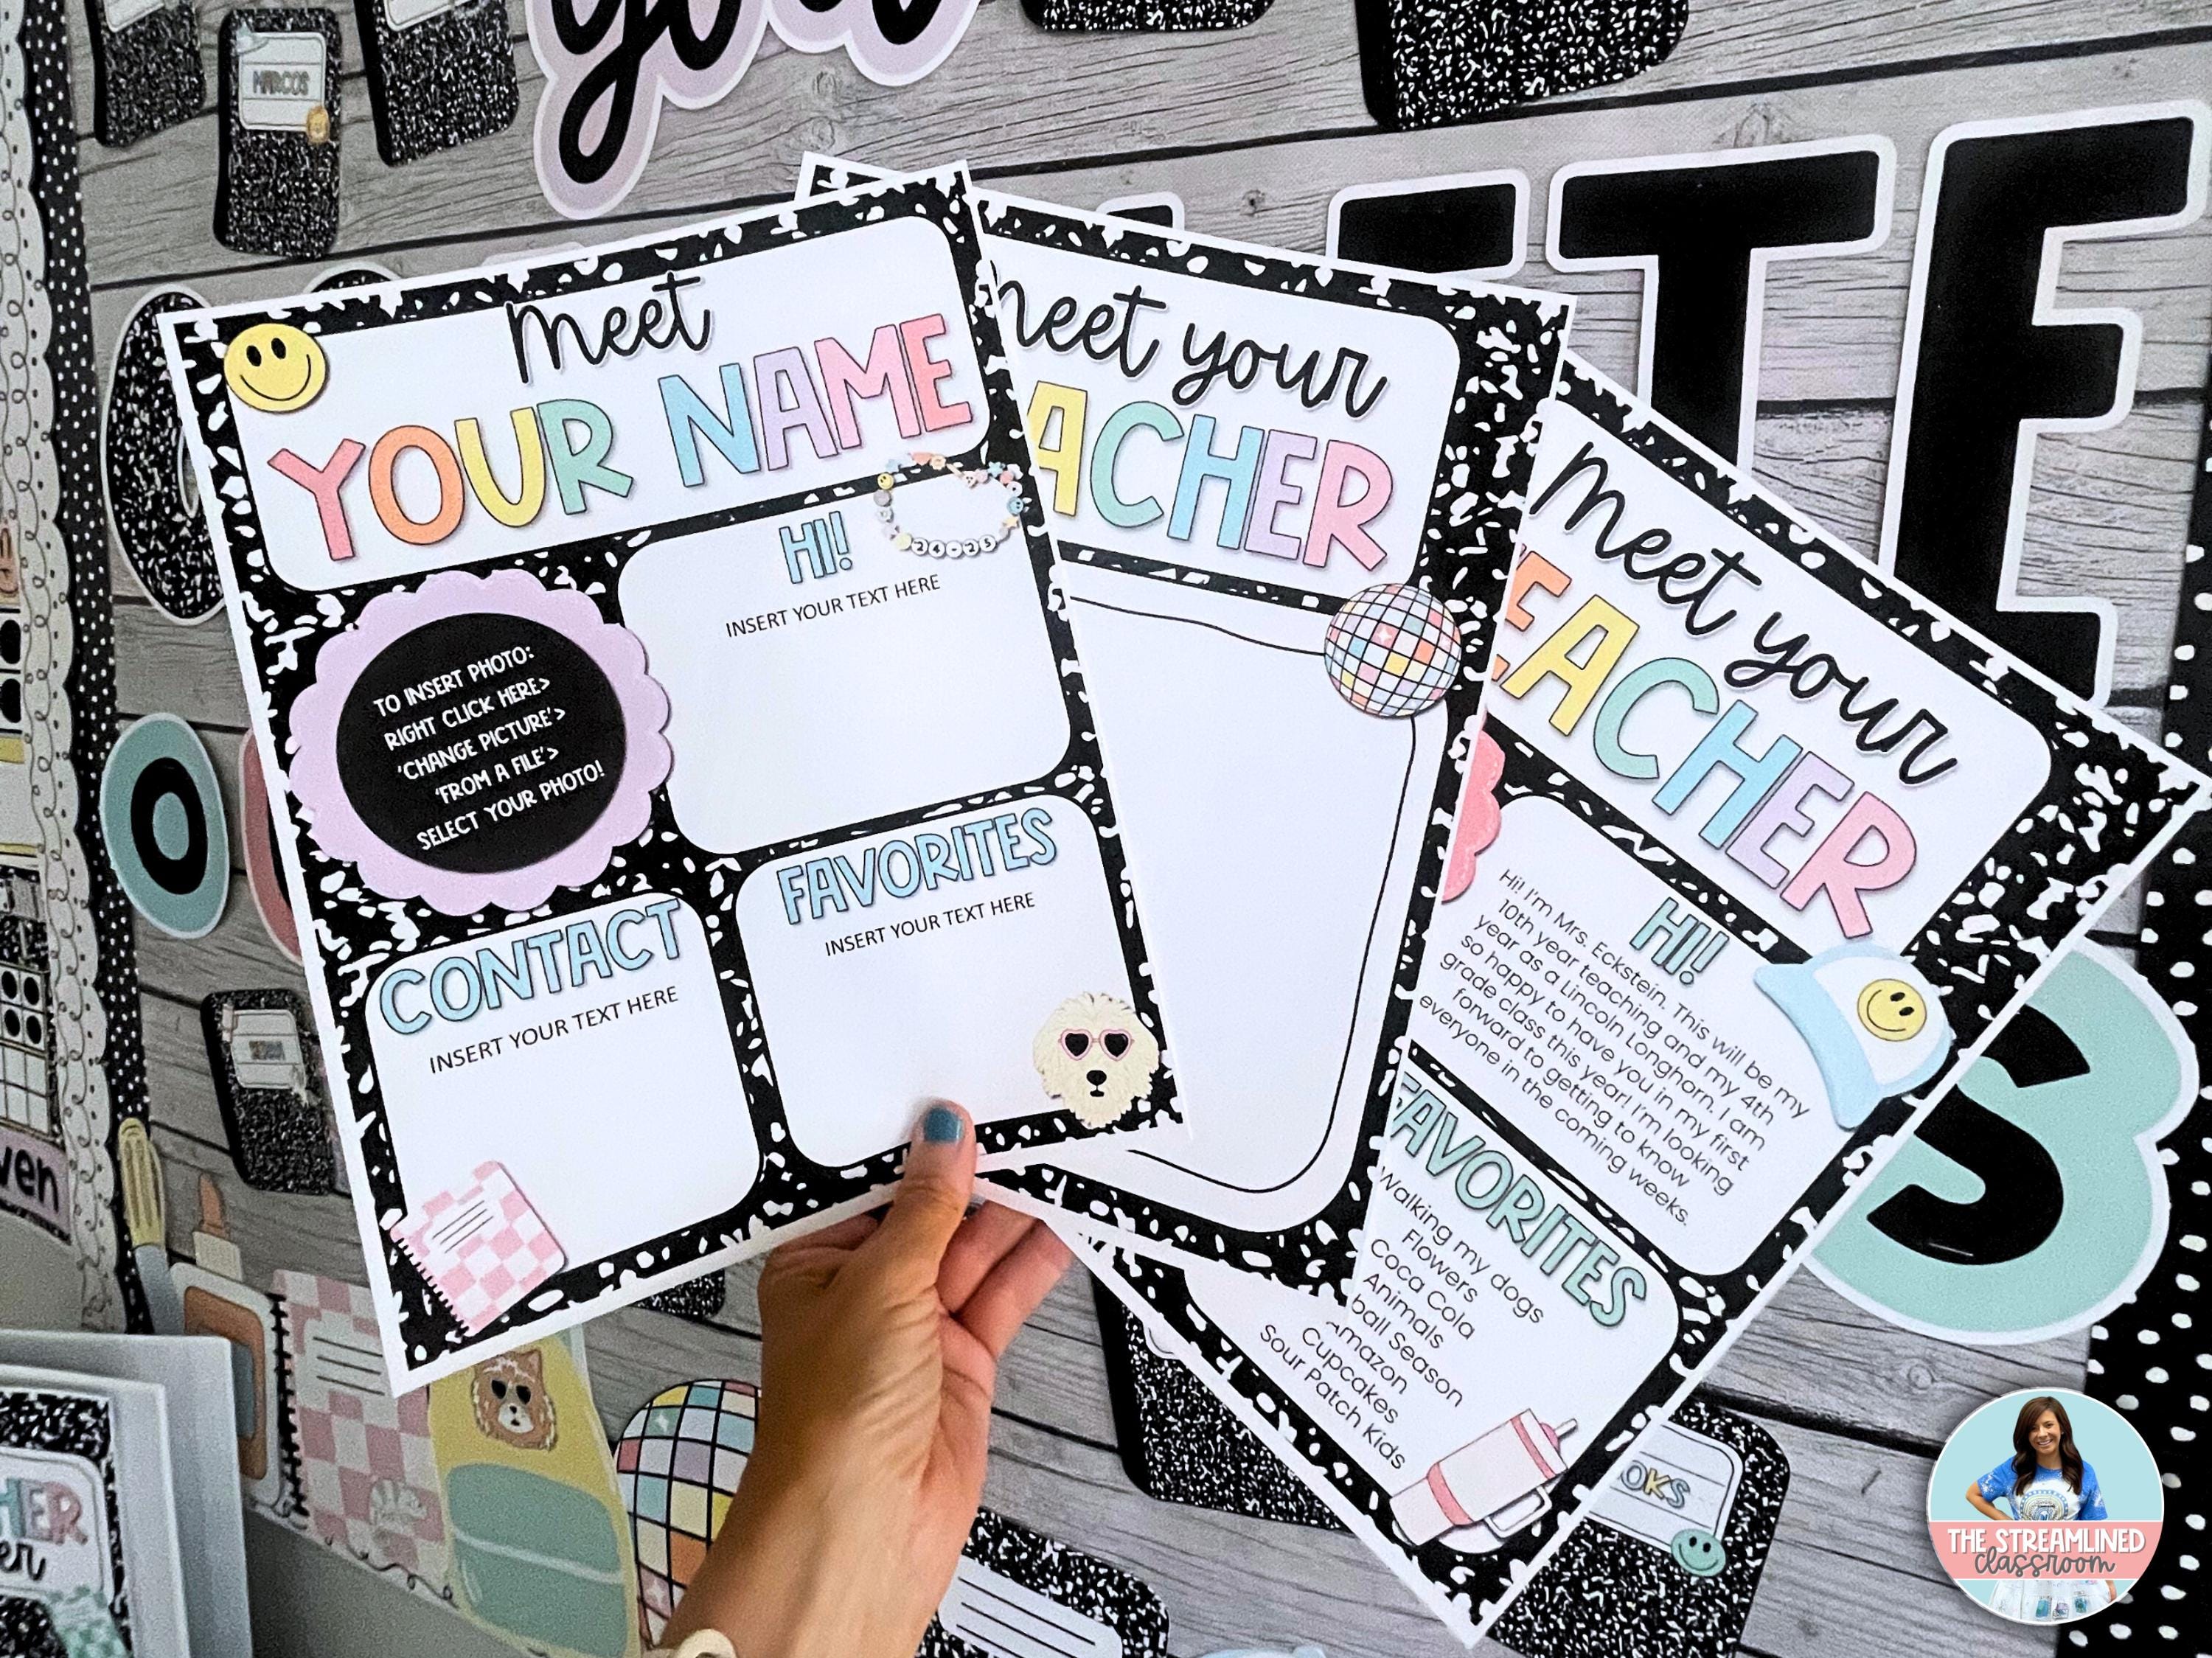 MARCOS
you
TE
meet
YOUR NAME
HI!
24-25
INSERT YOUR TEXT HERE
TO INSERT PHOTO:
RIGHT CLICK HERE>
'CHANGE PICTURE'>
'FROM A FILE'>
SELECT YOUR PHOTO!
FAVORITES
INSERT YOUR TEXT HERE
CONTACT
INSERT YOUR TEXT HERE
meet your
ACHER
meet your
EACHER
HI!
Hi! I'm Mrs. Eckstein. This will be my
10th year teaching and my 4th
year as a Lincoln Longhorn. I am
so happy to have you in my first
grade class this year! I'm looking
forward to getting to know
everyone in the coming weeks.
FAVORITES
Walking my dogs
Flowers
Coca Cola
Animals
ball Season
Amazon
Cupcakes
Sour Patch Kids
O
S
ven
HER
er
OKS
THE STREAMLINED
classroom